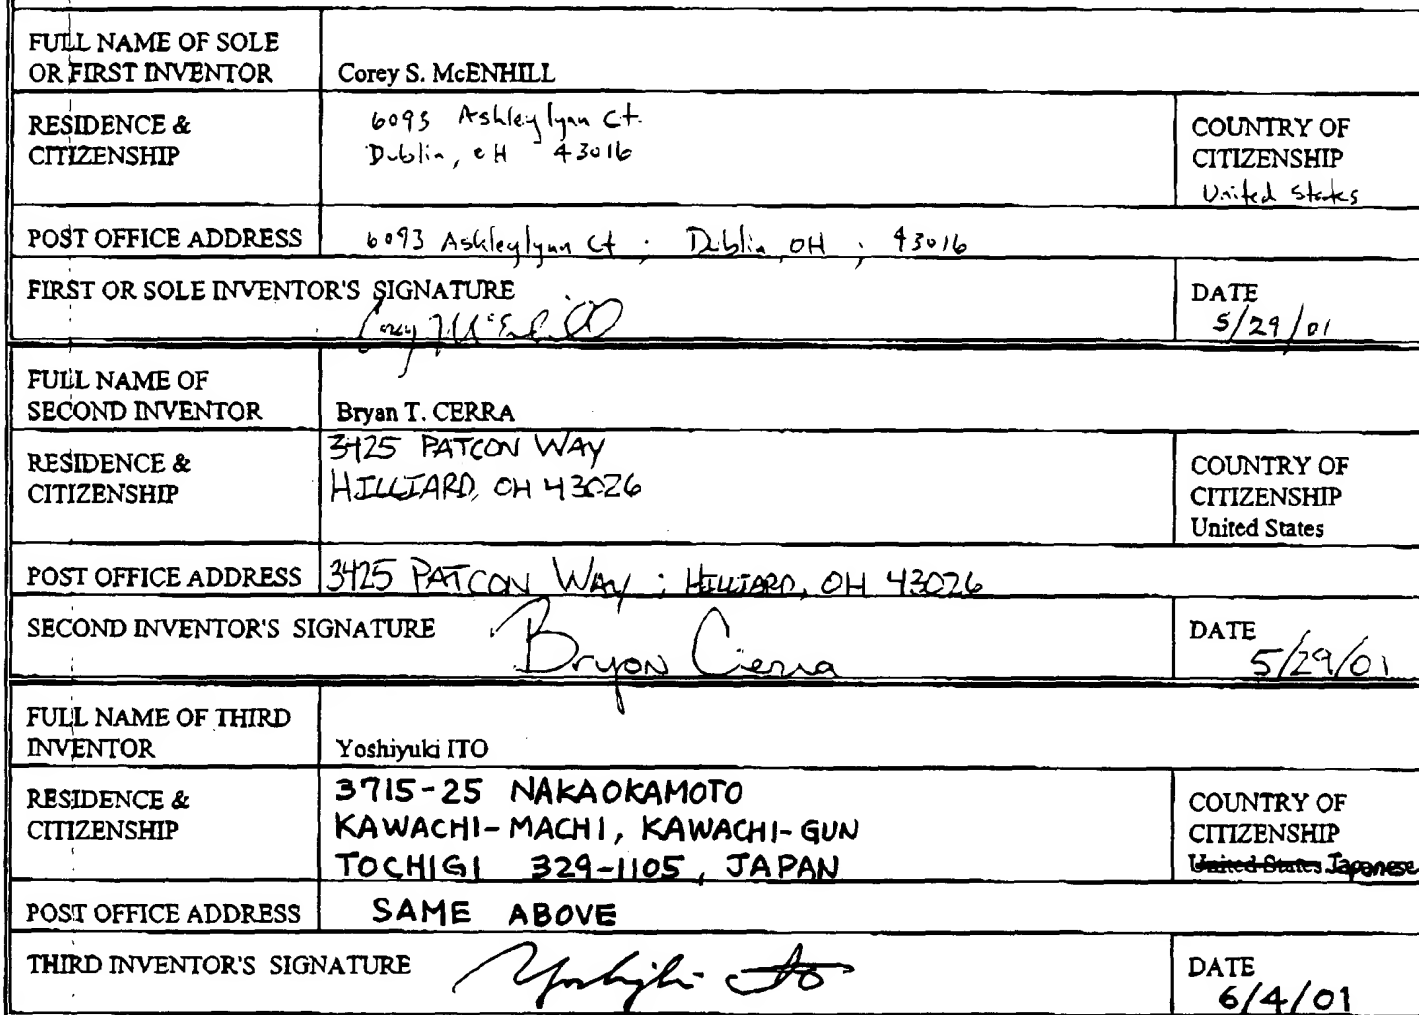 FULL NAME OF SOLE
OR FIRST INVENTOR
Corey S. McENHILL
RESIDENCE &
CITIZENSHIP
6093 Ashleylynn Ct.
Dublin, OH 43016
COUNTRY OF
CITIZENSHIP
United States
POST OFFICE ADDRESS
6093 Ashleylynn Ct ; Dublin, OH ; 43016
FIRST OR SOLE INVENTOR'S SIGNATURE
Corey McEnhill
DATE
5/29/01
FULL NAME OF
SECOND INVENTOR
Bryan T. CERRA
RESIDENCE &
CITIZENSHIP
3425 PATCON WAY
HILLIARD, OH 43026
COUNTRY OF
CITIZENSHIP
United States
POST OFFICE ADDRESS
3425 PATCON WAY ; HILLIARD, OH 43026
SECOND INVENTOR'S SIGNATURE
Bryon Cerra
DATE
5/29/01
FULL NAME OF THIRD
INVENTOR
Yoshiyuki ITO
RESIDENCE &
CITIZENSHIP
3715-25 NAKAOKAMOTO
KAWACHI-MACHI, KAWACHI-GUN
TOCHIGI 329-1105, JAPAN
COUNTRY OF
CITIZENSHIP
United States Japanese
POST OFFICE ADDRESS
SAME ABOVE
THIRD INVENTOR'S SIGNATURE
Yoshiyuki Ito
DATE
6/4/01